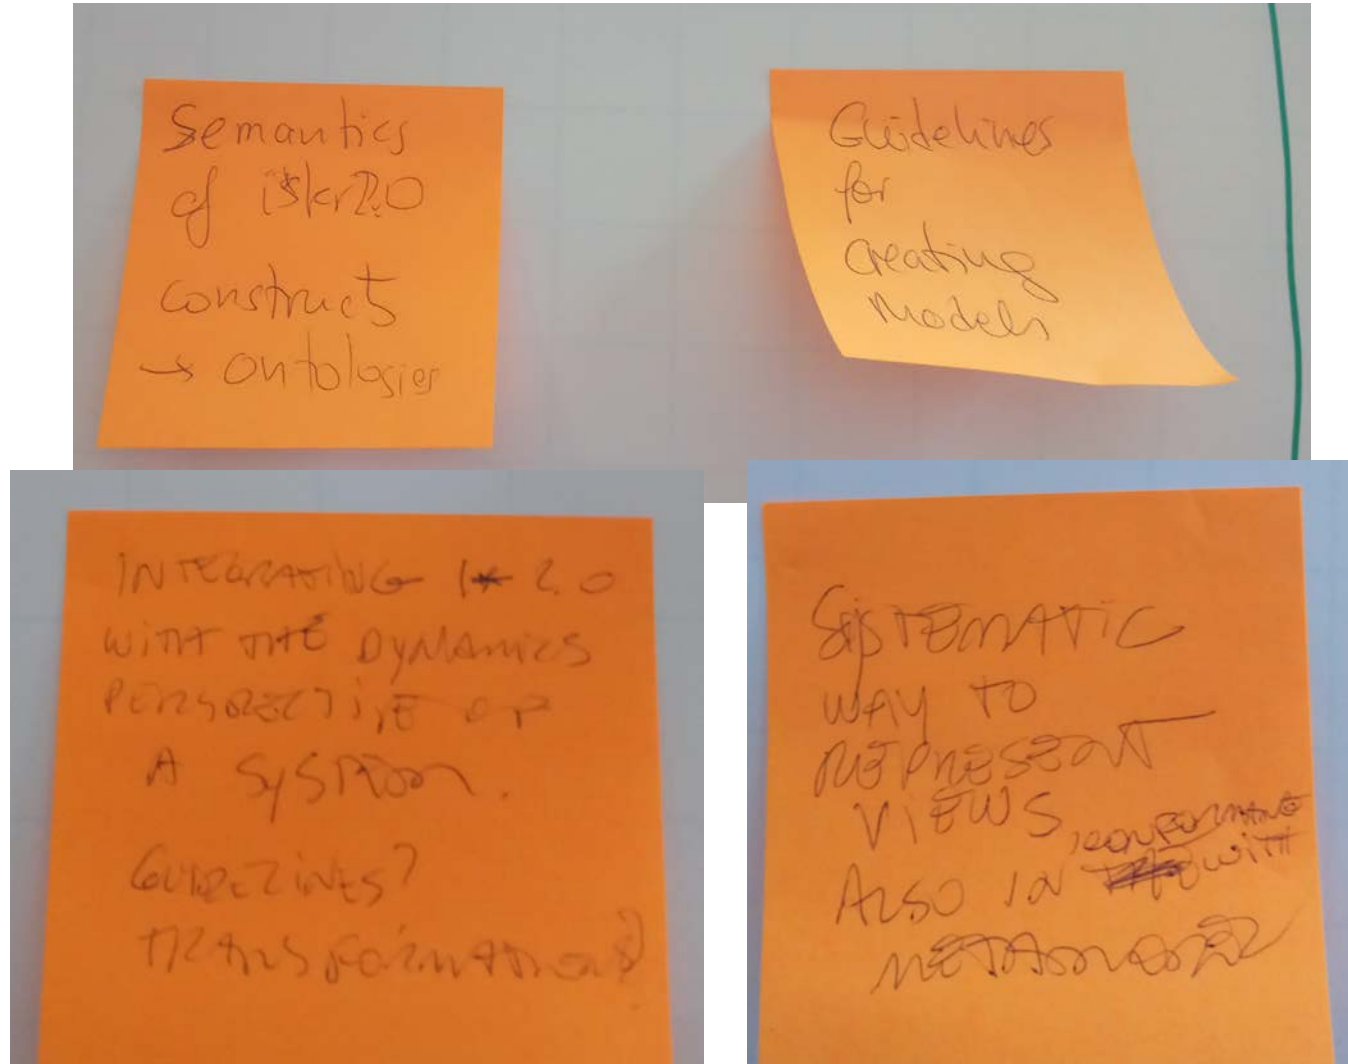 Semantics
of iStar2.0
construct
→ ontologies
Guidelines
for
creating
models
INTEGRATING i* 2.0
WITH THE DYNAMICS
PERSPECTIVE OF
A SYSTEM.
GUIDELINES?
TRANSFORMATIONS?
SYSTEMATIC
WAY TO
REPRESENT
VIEWS
ALSO IN CONFORMANCE
WITH
METAMODEL